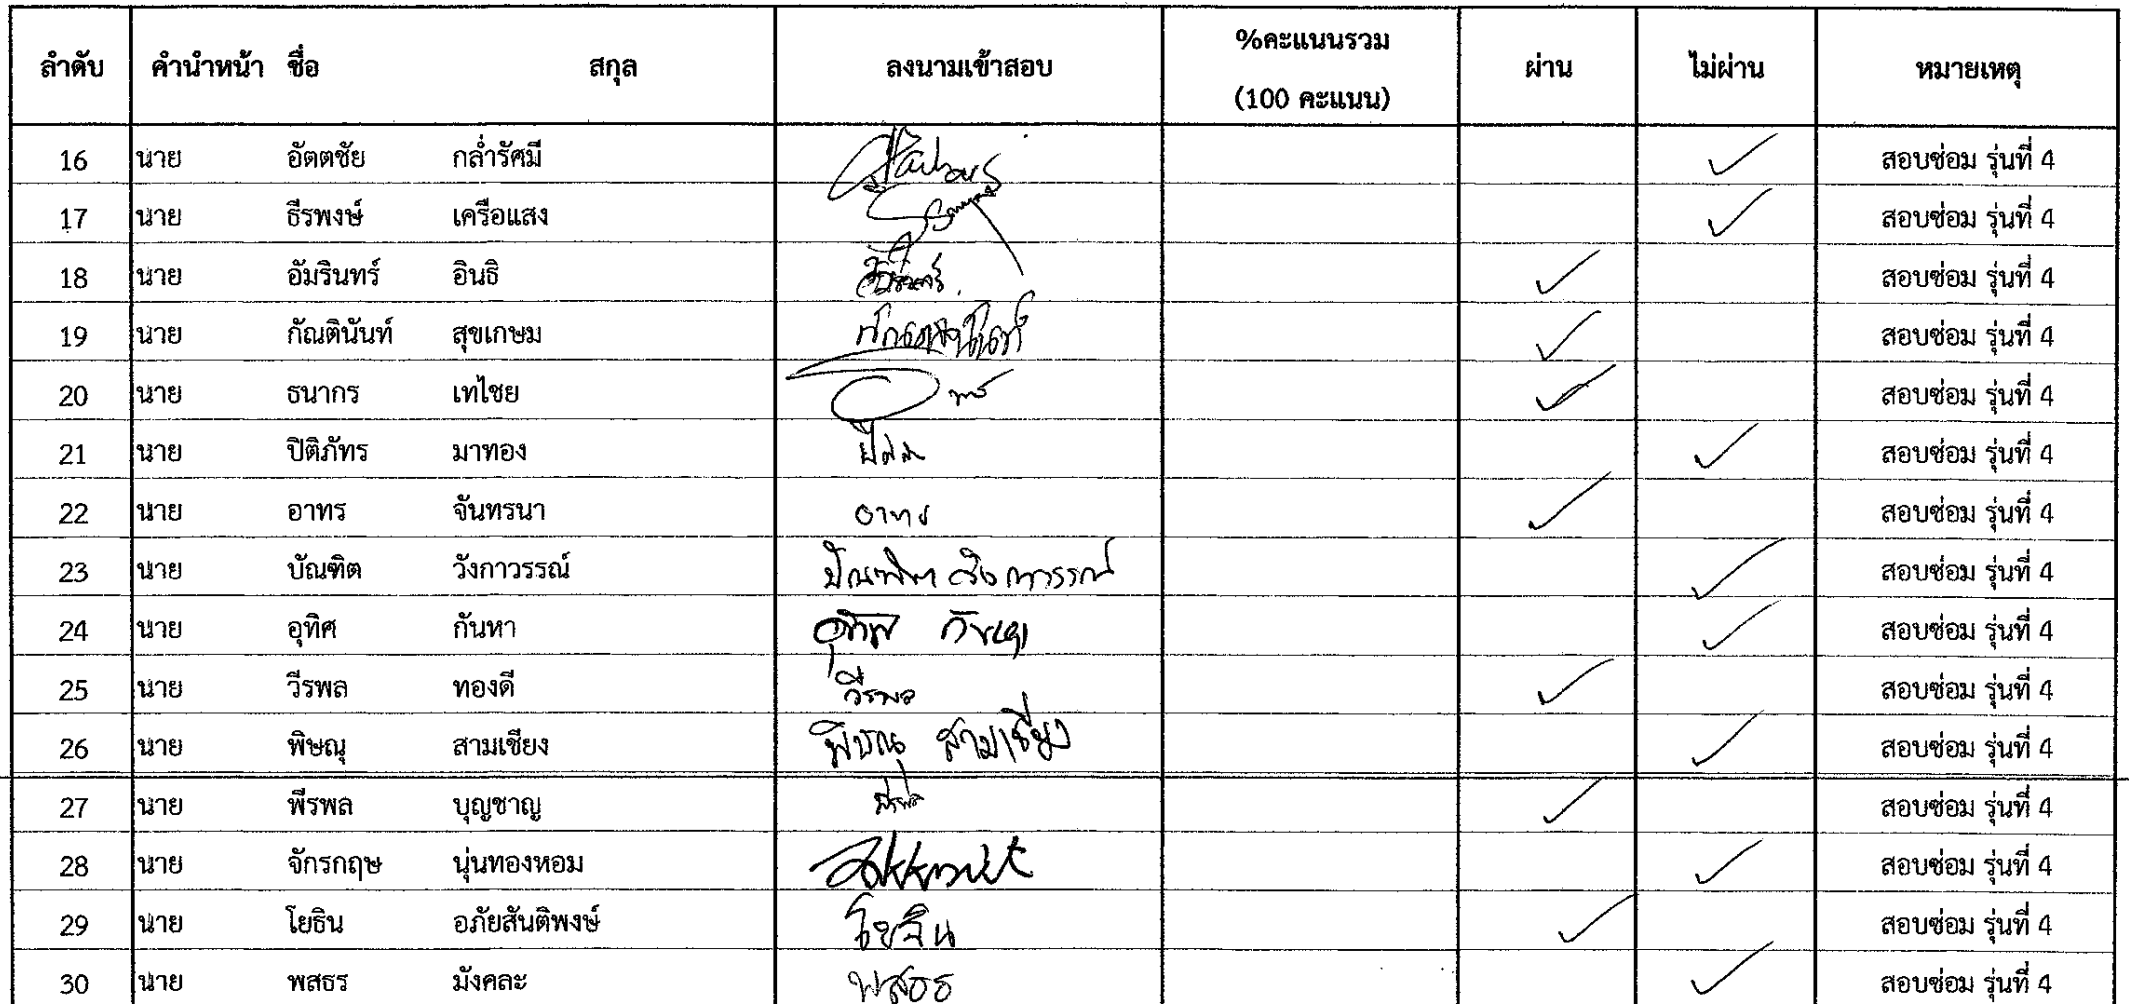 ลำดับ คำนำหน้า ชื่อ สกุล ลงนามเข้าสอบ %คะแนนรวม (100 คะแนน) ผ่าน ไม่ผ่าน หมายเหตุ
16 นาย อัตตชัย กล่ำรัศมี ✓ สอบซ่อม รุ่นที่ 4
17 นาย ธีรพงษ์ เครือแสง ✓ สอบซ่อม รุ่นที่ 4
18 นาย อัมรินทร์ อินธิ อัมรินทร์ ✓ สอบซ่อม รุ่นที่ 4
19 นาย กัณตินันท์ สุขเกษม ✓ สอบซ่อม รุ่นที่ 4
20 นาย ธนากร เทไชย ✓ สอบซ่อม รุ่นที่ 4
21 นาย ปิติภัทร มาทอง ✓ สอบซ่อม รุ่นที่ 4
22 นาย อาทร จันทรนา อาทร ✓ สอบซ่อม รุ่นที่ 4
23 นาย บัณฑิต วังกาวรรณ์ บัณฑิต วังกาวรรณ์ ✓ สอบซ่อม รุ่นที่ 4
24 นาย อุทิศ กันหา อุทิศ กันหา ✓ สอบซ่อม รุ่นที่ 4
25 นาย วีรพล ทองดี วีรพล ✓ สอบซ่อม รุ่นที่ 4
26 นาย พิษณุ สามเชียง พิษณุ สามเชียง ✓ สอบซ่อม รุ่นที่ 4
27 นาย พีรพล บุญชาญ พีรพล ✓ สอบซ่อม รุ่นที่ 4
28 นาย จักรกฤษ นุ่นทองหอม ✓ สอบซ่อม รุ่นที่ 4
29 นาย โยธิน อภัยสันติพงษ์ โยธิน ✓ สอบซ่อม รุ่นที่ 4
30 นาย พสธร มังคละ พสธร ✓ สอบซ่อม รุ่นที่ 4